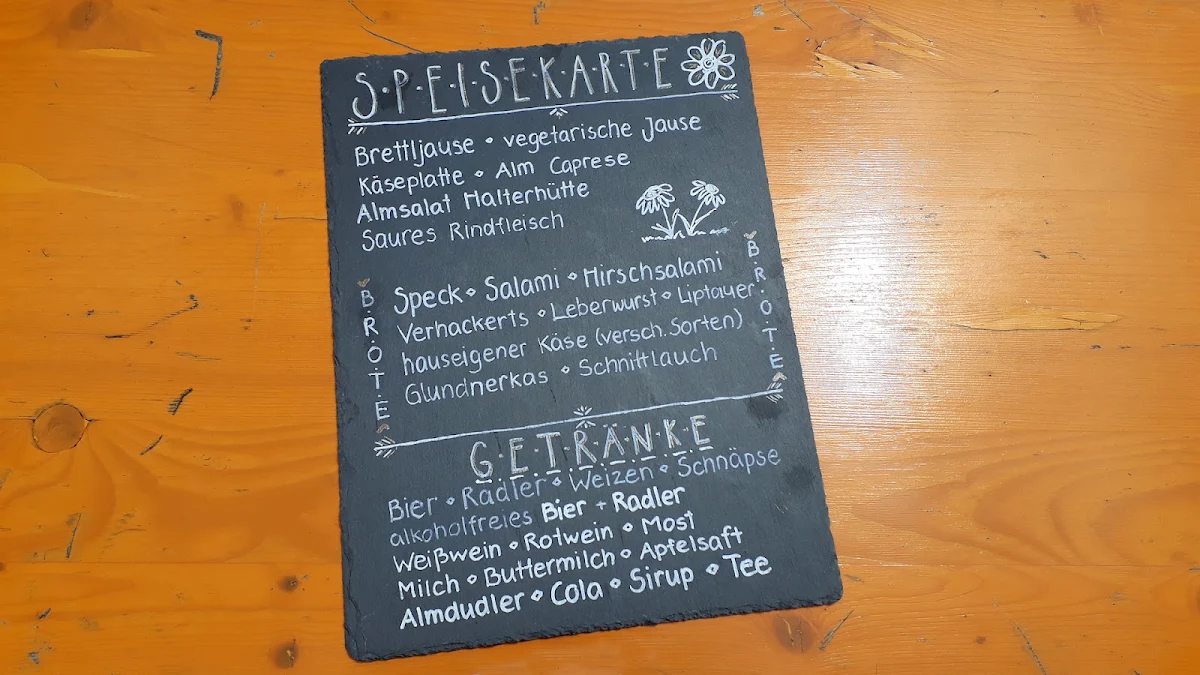 S·P·E·I·S·E·K·A·R·T·E
Brettljause • vegetarische Jause
Käseplatte • Alm Caprese
Almsalat Halterhütte
Saures Rindfleisch
B·R·O·T·E
Speck • Salami • Hirschsalami
Verhackerts • Leberwurst • Liptauer
hauseigener Käse (versch. Sorten)
Glundnerkas • Schnittlauch
B·R·O·T·E
G·E·T·R·Ä·N·K·E
Bier • Radler • Weizen • Schnäpse
alkoholfreies Bier + Radler
Weißwein • Rotwein • Most
Milch • Buttermilch • Apfelsaft
Almdudler • Cola • Sirup • Tee